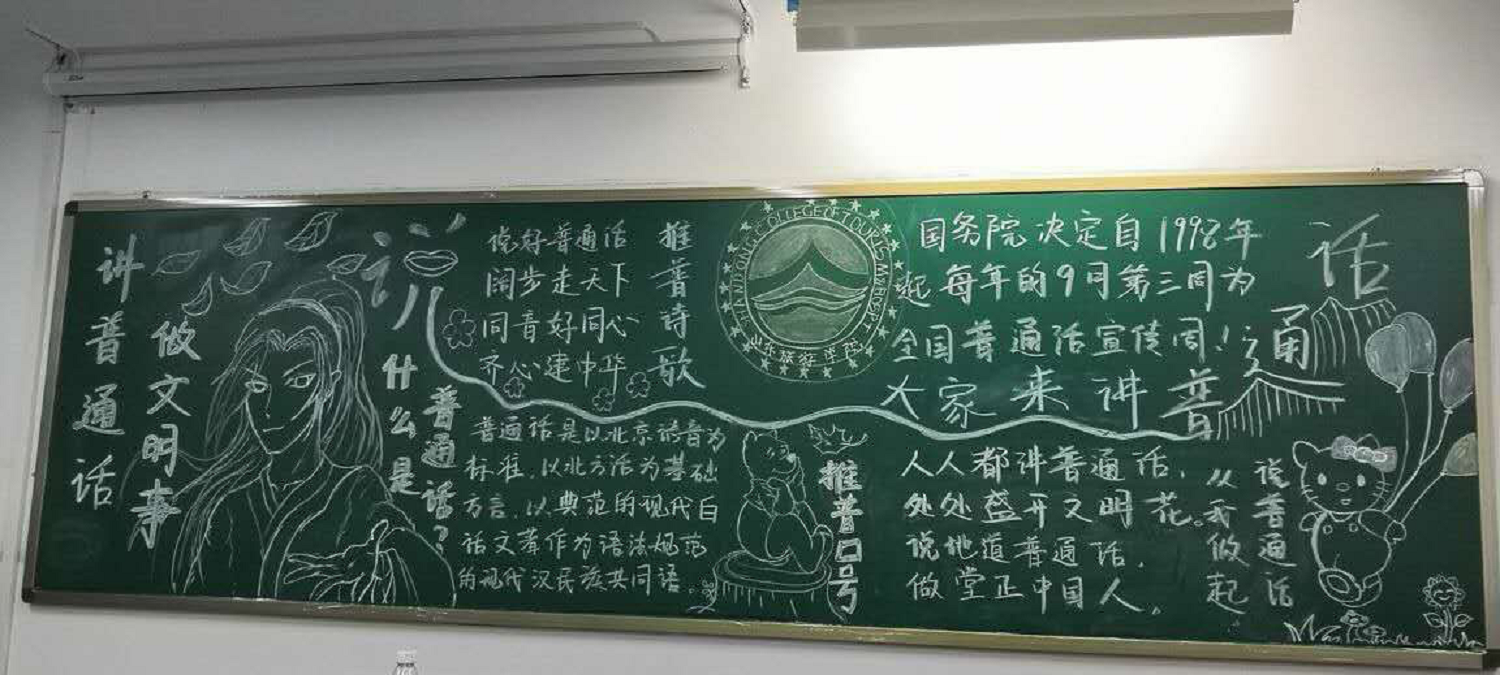 讲普通话
做文明事
说
什么是
普通话?
推普诗歌
说好普通话
阔步走天下
同音好同心
齐心建中华
普通话是以北京语音为
标准，以北方话为基础
方言，以典范的现代白
话文著作为语法规范
的现代汉民族共同语。
COLLEGE OF TOURISM
山东旅游学院
国务院决定自1998年
起每年的9月第三周为
全国普通话宣传周!
大家来讲普通话
推普口号
人人都讲普通话，
处处盛开文明花。
说地道普通话，
做堂正中国人。
说普通话
从我做起